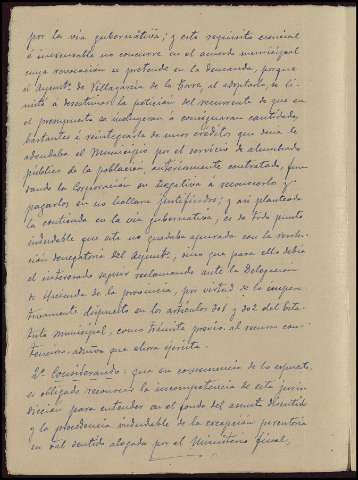 por la vía gubernativa; y este requisito esencial
é inexcusable no concurre en el acuerdo municipal
cuya revocación se pretende en la demanda, porque
el Ayunt.º de Villagarcía de la Torre, al adoptarlo, se li-
mitó á desestimar la petición del recurrente de que en
el presupuesto se incluyeran ó consignaran cantidades
bastantes á reintegrarle de unos créditos que decía le
adeudaba el Municipio por el servicio de alumbrado
público de la población, anteriormente contratado, fun-
dando la Corporación su negativa a reconocerlo y
pagarlos en no hallarse justificados; y así planteada
la contienda en la vía gubernativa, es de todo punto
indudable que esta no quedaba apurada con la resolu-
ción denegatoria del Ayunt.º, sino que para ello debía
el interesado seguir reclamando ante la Delegación
de Hacienda de la provincia, por virtud de lo impera-
tivamente dispuesto en los artículos 301 y 302 del Esta-
tuto municipal, como trámite previo al recurso con-
tencioso-admvo que ahora ejercita.
2º Considerando: que en consecuencia de lo expuesto,
es obligado reconocer la incompetencia de esta juris-
dicción para entender en el fondo del asunto discutido
y la procedencia indudable de la excepción perentoria
en tal sentido alegada por el Ministerio fiscal,